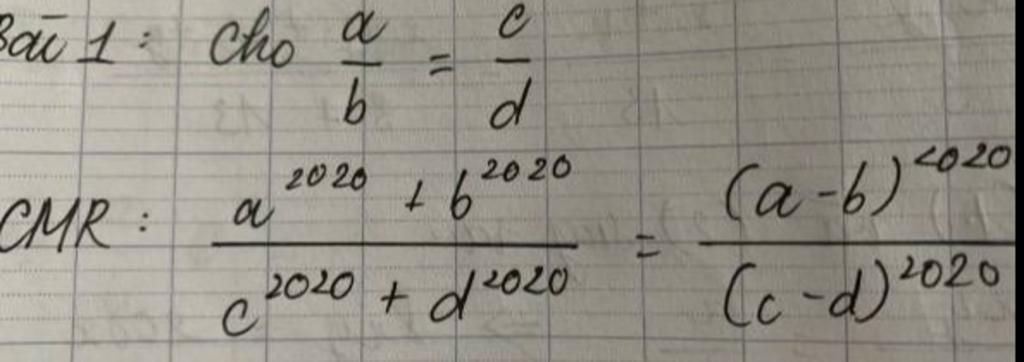 Bài 1: Cho a/b = c/d
CMR: (a^2020 + b^2020)/(c^2020 + d^2020) = (a-b)^2020/(c-d)^2020